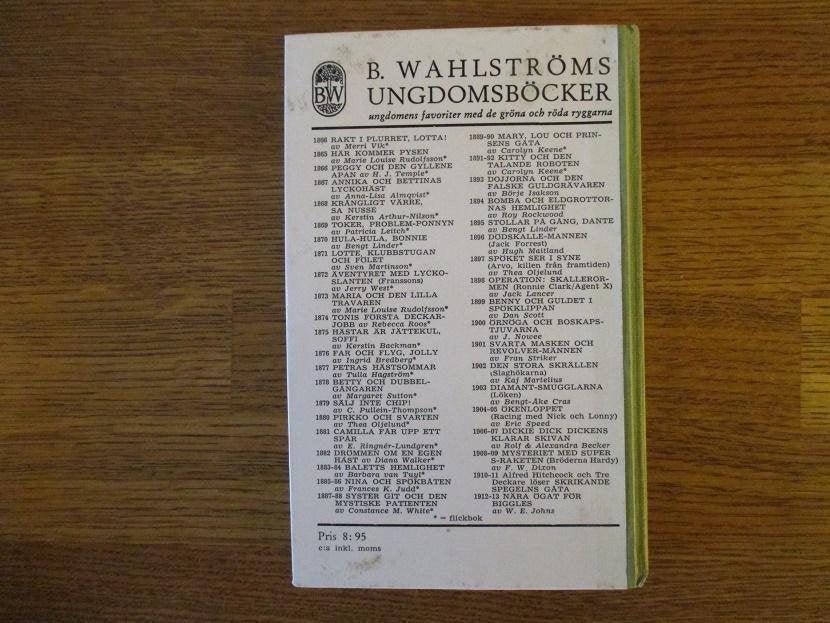 BW
B. WAHLSTRÖMS
UNGDOMSBÖCKER
ungdomens favoriter med de gröna och röda ryggarna
1866 RAKT I PLURRET, LOTTA!
av Merri Vik*
1865 HÄR KOMMER PYSEN
av Marie Louise Rudolfsson*
1866 PEGGY OCH DEN GYLLENE
APAN av H. J. Temple*
1867 ANNIKA OCH BETTINAS
LYCKOHÄST
av Anna-Lisa Almqvist*
1868 KRÅNGLIGT VÄRRE,
SA NUSSE
av Kerstin Arthur-Nilson*
1869 TOKER, PROBLEM-PONNYN
av Patricia Leitch*
1870 HULA-HULA, BONNIE
av Bengt Linder*
1871 LOTTE, KLUBBSTUGAN
OCH FÖLET
av Sven Martinson*
1872 ÄVENTYRET MED LYCKO-
SLANTEN (Franssons)
av Jerry West*
1873 MARIA OCH DEN LILLA
TRAVAREN
av Marie Louise Rudolfsson*
1874 TONIS FÖRSTA DECKAR-
JOBB av Rebecca Roos*
1875 HÄSTAR ÄR JÄTTEKUL,
SOFFI
av Kerstin Backman*
1876 FAR OCH FLYG, JOLLY
av Ingrid Bredberg*
1877 PETRAS HÄSTSOMMAR
av Tulla Hagström*
1878 BETTY OCH DUBBEL-
GÅNGAREN
av Margaret Sutton*
1879 SÄLJ INTE CHIP!
av C. Pullein-Thompson*
1880 PIRKKO OCH SVARTEN
av Thea Oljelund*
1881 CAMILLA FÅR UPP ETT
SPÅR
av E. Ringnér-Lundgren*
1882 DRÖMMEN OM EN EGEN
HÄST av Diana Walker*
1883-84 BALETTS HEMLIGHET
av Barbara van Tuyl*
1885-86 NINA OCH SPÖKBÅTEN
av Frances K. Judd*
1887-88 SYSTER GIT OCH DEN
MYSTISKE PATIENTEN
av Constance M. White*
1889-90 MARY, LOU OCH PRIN-
SENS GÅTA
av Carolyn Keene*
1891-92 KITTY OCH DEN
TALANDE ROBOTEN
av Carolyn Keene*
1893 DOJJORNA OCH DEN
FALSKE GULDGRÄVAREN
av Börje Isakson
1894 BOMBA OCH ELDGROTTOR-
NAS HEMLIGHET
av Roy Rockwood
1895 STOLLAR PÅ GÅNG, DANTE
av Bengt Linder
1896 DÖDSKALLE-MANNEN
(Jack Forrest)
av Hugh Maitland
1897 SPÖKET SER I SYNE
(Arvo, killen från framtiden)
av Thea Oljelund
1898 OPERATION: SKALLEROR-
MEN (Ronnie Clark/Agent X)
av Jack Lancer
1899 BENNY OCH GULDET I
SPÖKKLIPPAN
av Dan Scott
1900 ÖRNÖGA OCH BOSKAPS-
TJUVARNA
av J. Nowee
1901 SVARTA MASKEN OCH
REVOLVER-MÄNNEN
av Fran Striker
1902 DEN STORA SKRÄLLEN
(Slaghökarna)
av Kaj Martelius
1903 DIAMANT-SMUGGLARNA
(Löken)
av Bengt-Åke Cras
1904-05 ÖKENLOPPET
(Racing med Nick och Lonny)
av Eric Speed
1906-07 DICKIE DICK DICKENS
KLARAR SKIVAN
av Rolf & Alexandra Becker
1908-09 MYSTERIET MED SUPER
S-RAKETEN (Bröderna Hardy)
av F. W. Dixon
1910-11 Alfred Hitchcock och Tre
Deckare löser SKRIKANDE
SPEGELNS GÅTA
1912-13 NÄRA ÖGAT FÖR
BIGGLES
av W. E. Johns
* = flickbok
Pris 8:95
c:a inkl. moms